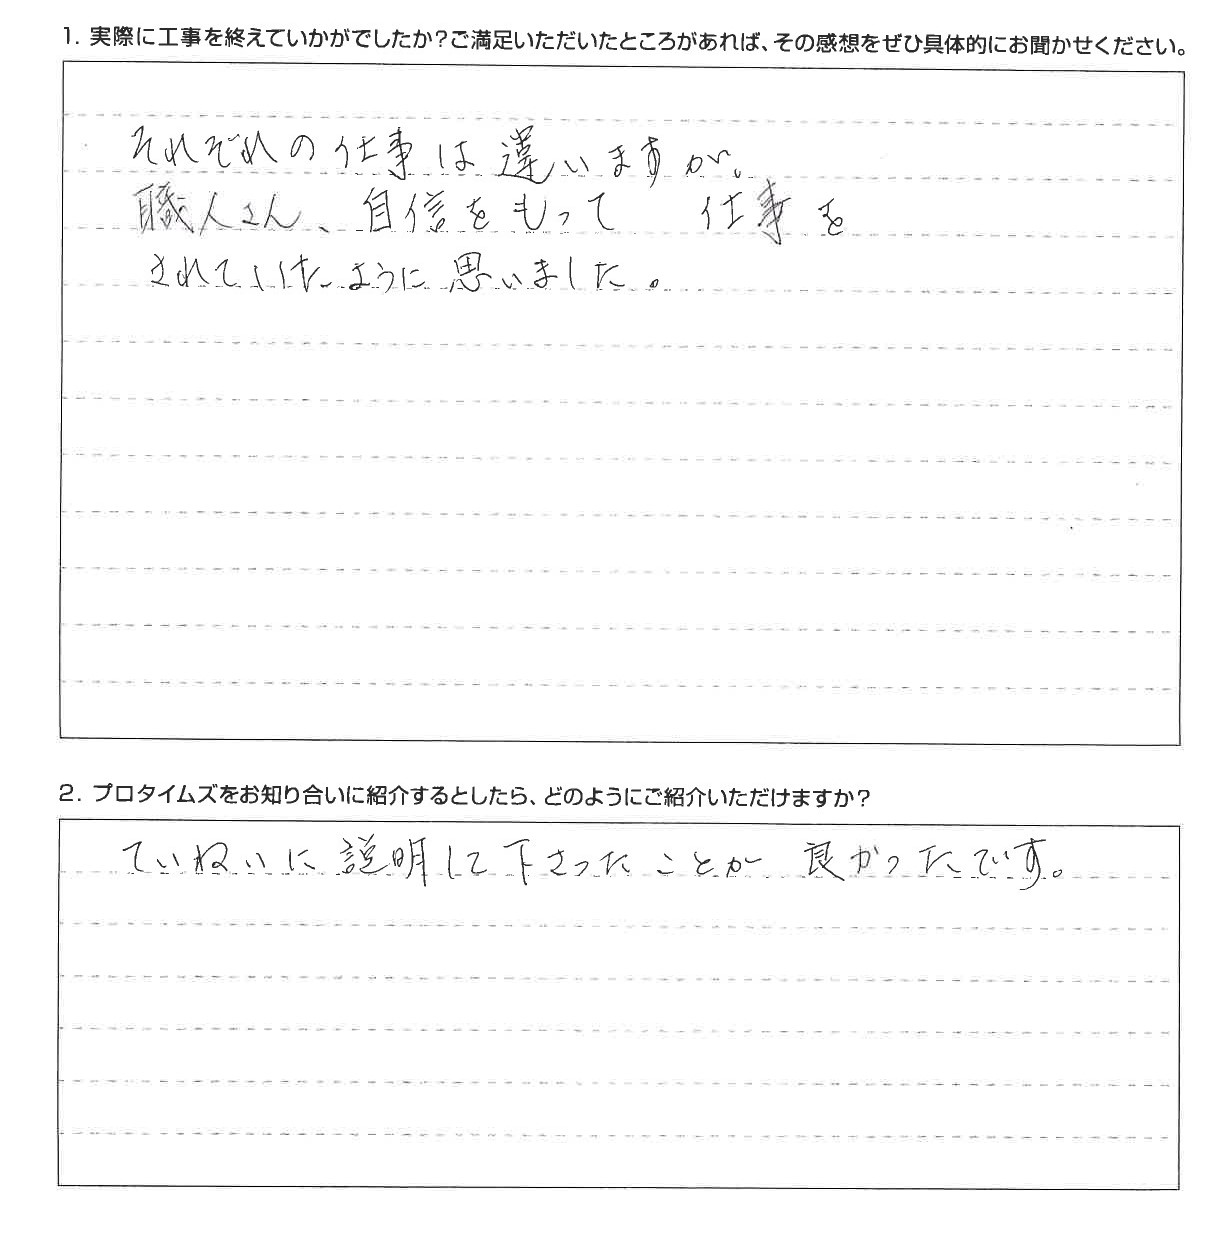 1. 実際に工事を終えていかがでしたか?ご満足いただいたところがあれば、その感想をぜひ具体的にお聞かせください。
それぞれの仕事は違いますが。
職人さん、自信をもって 仕事を
されていたように思いました。
2. プロタイムズをお知り合いに紹介するとしたら、どのようにご紹介いただけますか?
ていねいに説明して下さったことが 良かったです。